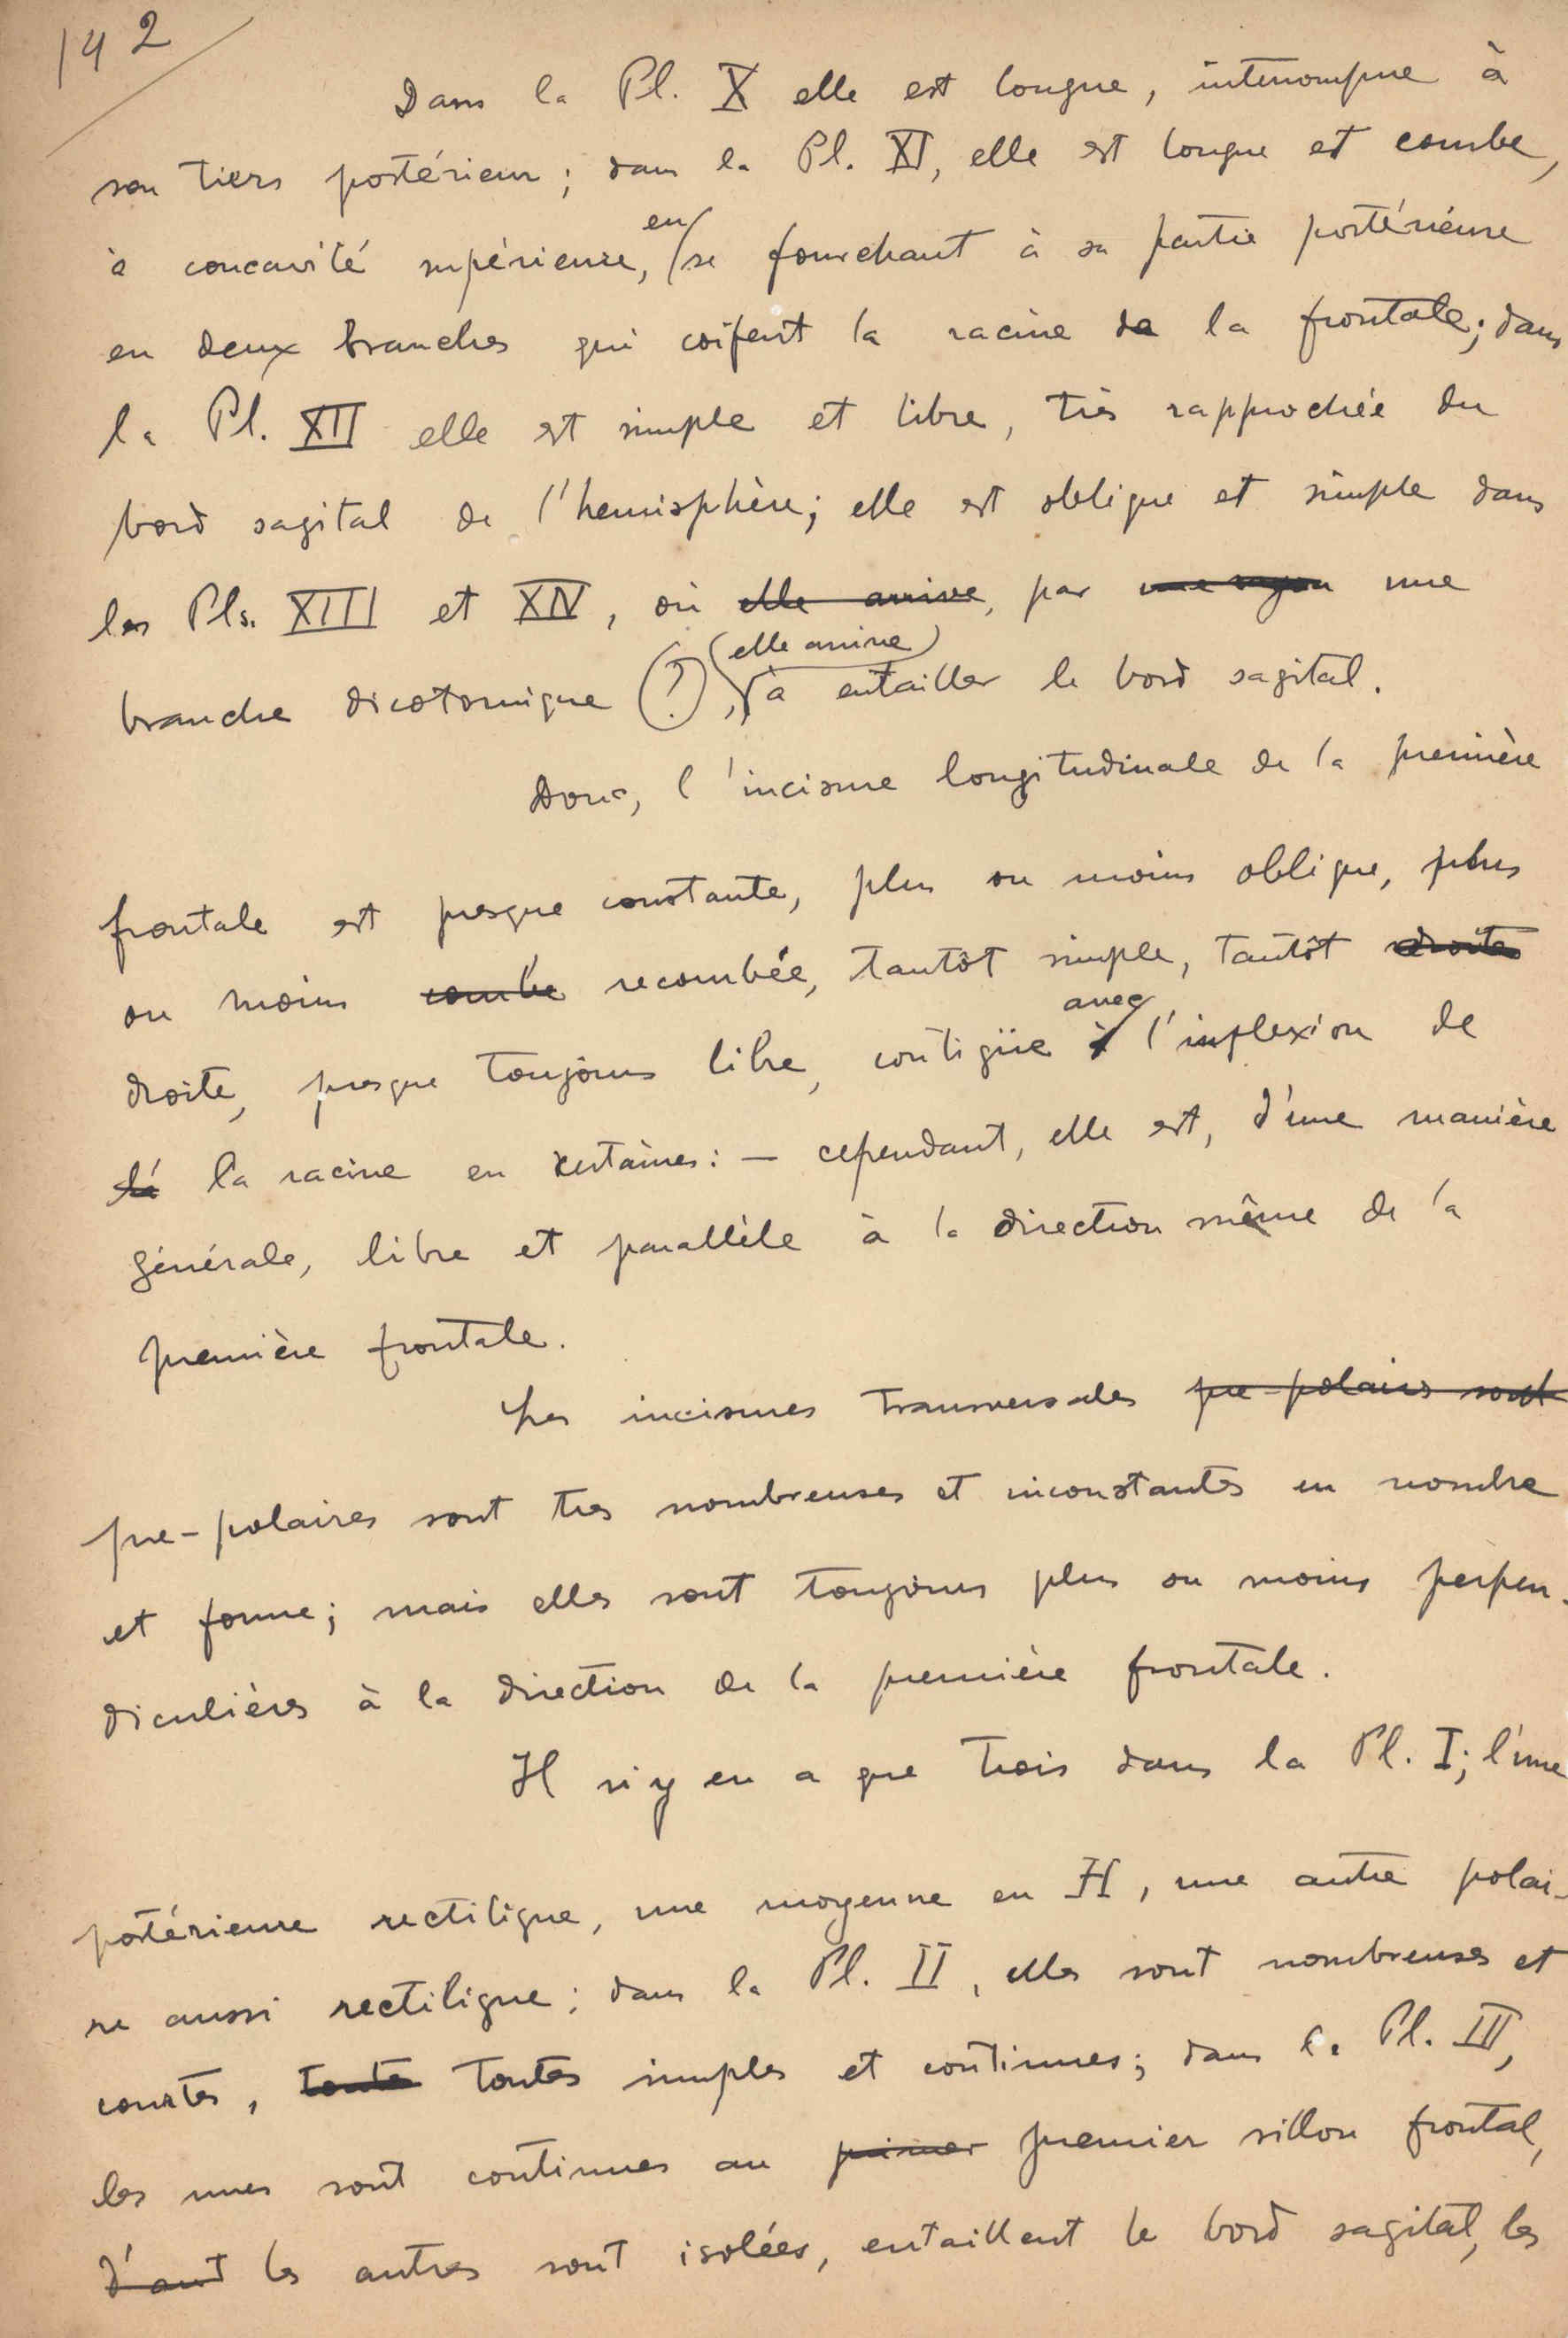 142
Dans la Pl. X elle est longue, interrompue à
son tiers postérieur; dans la Pl. XI, elle est longue et courbe,
à concavité supérieure, en se fourchant à sa partie postérieure
en deux branches qui coifent la racine de la frontale; dans
la Pl. XII elle est simple et libre, très rapprochée du
bord sagital de l'hemisphère; elle est oblique et simple dans
les Pls. XIII et XIV, où elle arrive, par une
branche dicotomique (?), (elle arrive) à entailler le bord sagital.
Donc, l'incisure longitudinale de la première
frontale est presque constante, plus ou moins oblique, plus
ou moins courbe recourbée, tantôt simple, tantôt droite
droite, presque toujours libre, contigüe à avec l'inflexion de
la racine en certaines: — cependant, elle est, d'une manière
générale, libre et parallèle à la direction même de la
première frontale.
Les incisures transversales pre-polaires sont
pre-polaires sont tres nombreuses et inconstantes en nombre
et forme; mais elles sont toujours plus ou moins perpen-
diculières à la direction de la première frontale.
Il n'y en a que trois dans la Pl. I; l'une
postérieure rectiligne, une moyenne en H, une autre polai-
re aussi rectiligne; dans la Pl. II, elles sont nombreuses et
courtes, toutes toutes simples et continues; dans la Pl. III,
les unes sont continues au primer premier sillon frontal,
d'aut les autres sont isolées, entaillent le bord sagital, les